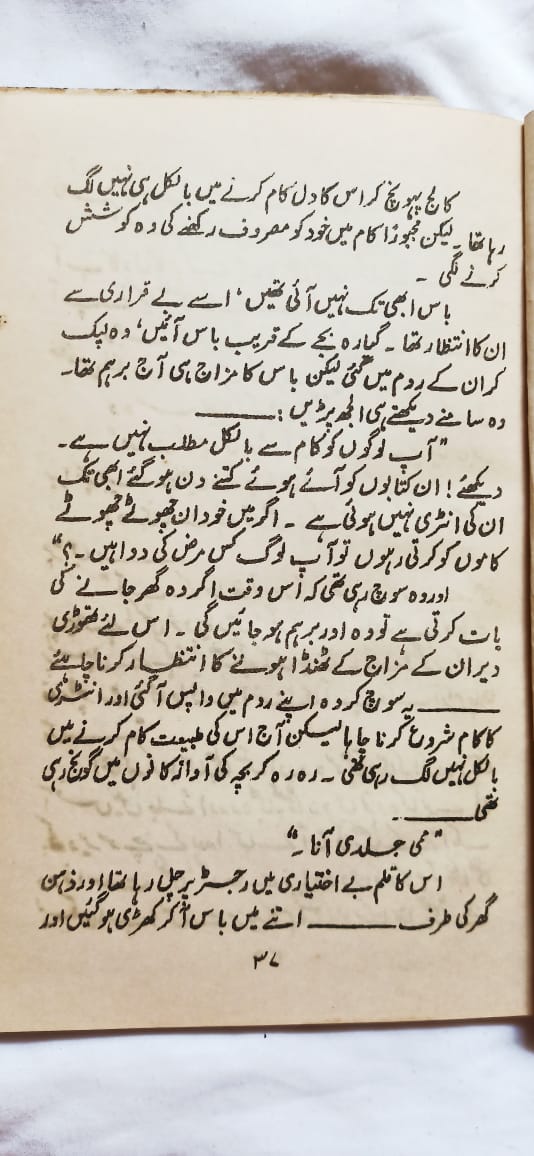 کالج پہونچ کر اس کا دل کام کرنے میں بالکل ہی نہیں لگ
رہا تھا۔ لیکن مجبوراً کام میں خود کو مصروف رکھنے کی وہ کوشش
کرنے لگی ۔
باس ابھی تک نہیں آئی تھیں، اسے بے قراری سے
ان کا انتظار تھا۔ گیارہ بجے کے قریب باس آئیں، وہ لپک
کر ان کے روم میں گئی لیکن باس کا مزاج ہی آج برہم تھا۔
وہ سامنے دیکھتے ہی الجھ پڑیں :ــــــــ
"آپ لوگوں کو کام سے بالکل مطلب نہیں ہے۔
دیکھئے! ان کتابوں کو آئے ہوئے کتنے دن ہو گئے ابھی تک
ان کی انٹری نہیں ہوئی ہے ۔ اگر میں خود ان چھوٹے چھوٹے
کاموں کو کرتی رہوں تو آپ لوگ کس مرض کی دوا ہیں ۔؟"
اور وہ سوچ رہی تھی کہ اس وقت اگر وہ گھر جانے کی
بات کرتی ہے تو وہ اور برہم ہو جائیں گی ۔ اس لئے تھوڑی
دیر ان کے مزاج کے ٹھنڈا ہونے کا انتظار کرنا چاہئے
ــــــــ یہ سوچ کر وہ اپنے روم میں واپس آگئی اور انٹری
کا کام شروع کرنا چاہا لیکن آج اس کی طبیعت کام کرنے میں
بالکل نہیں لگ رہی تھی ۔ رہ رہ کر بچہ کی آواز کانوں میں گونج رہی
تھی ــــــــ ۔
"ممی جلدی آنا ۔"
اس کا قلم بے اختیاری میں رجسٹر پر چل رہا تھا اور ذہن
گھر کی طرف ــــــــ اتنے میں باس آ کر کھڑی ہو گئیں اور
۳۷